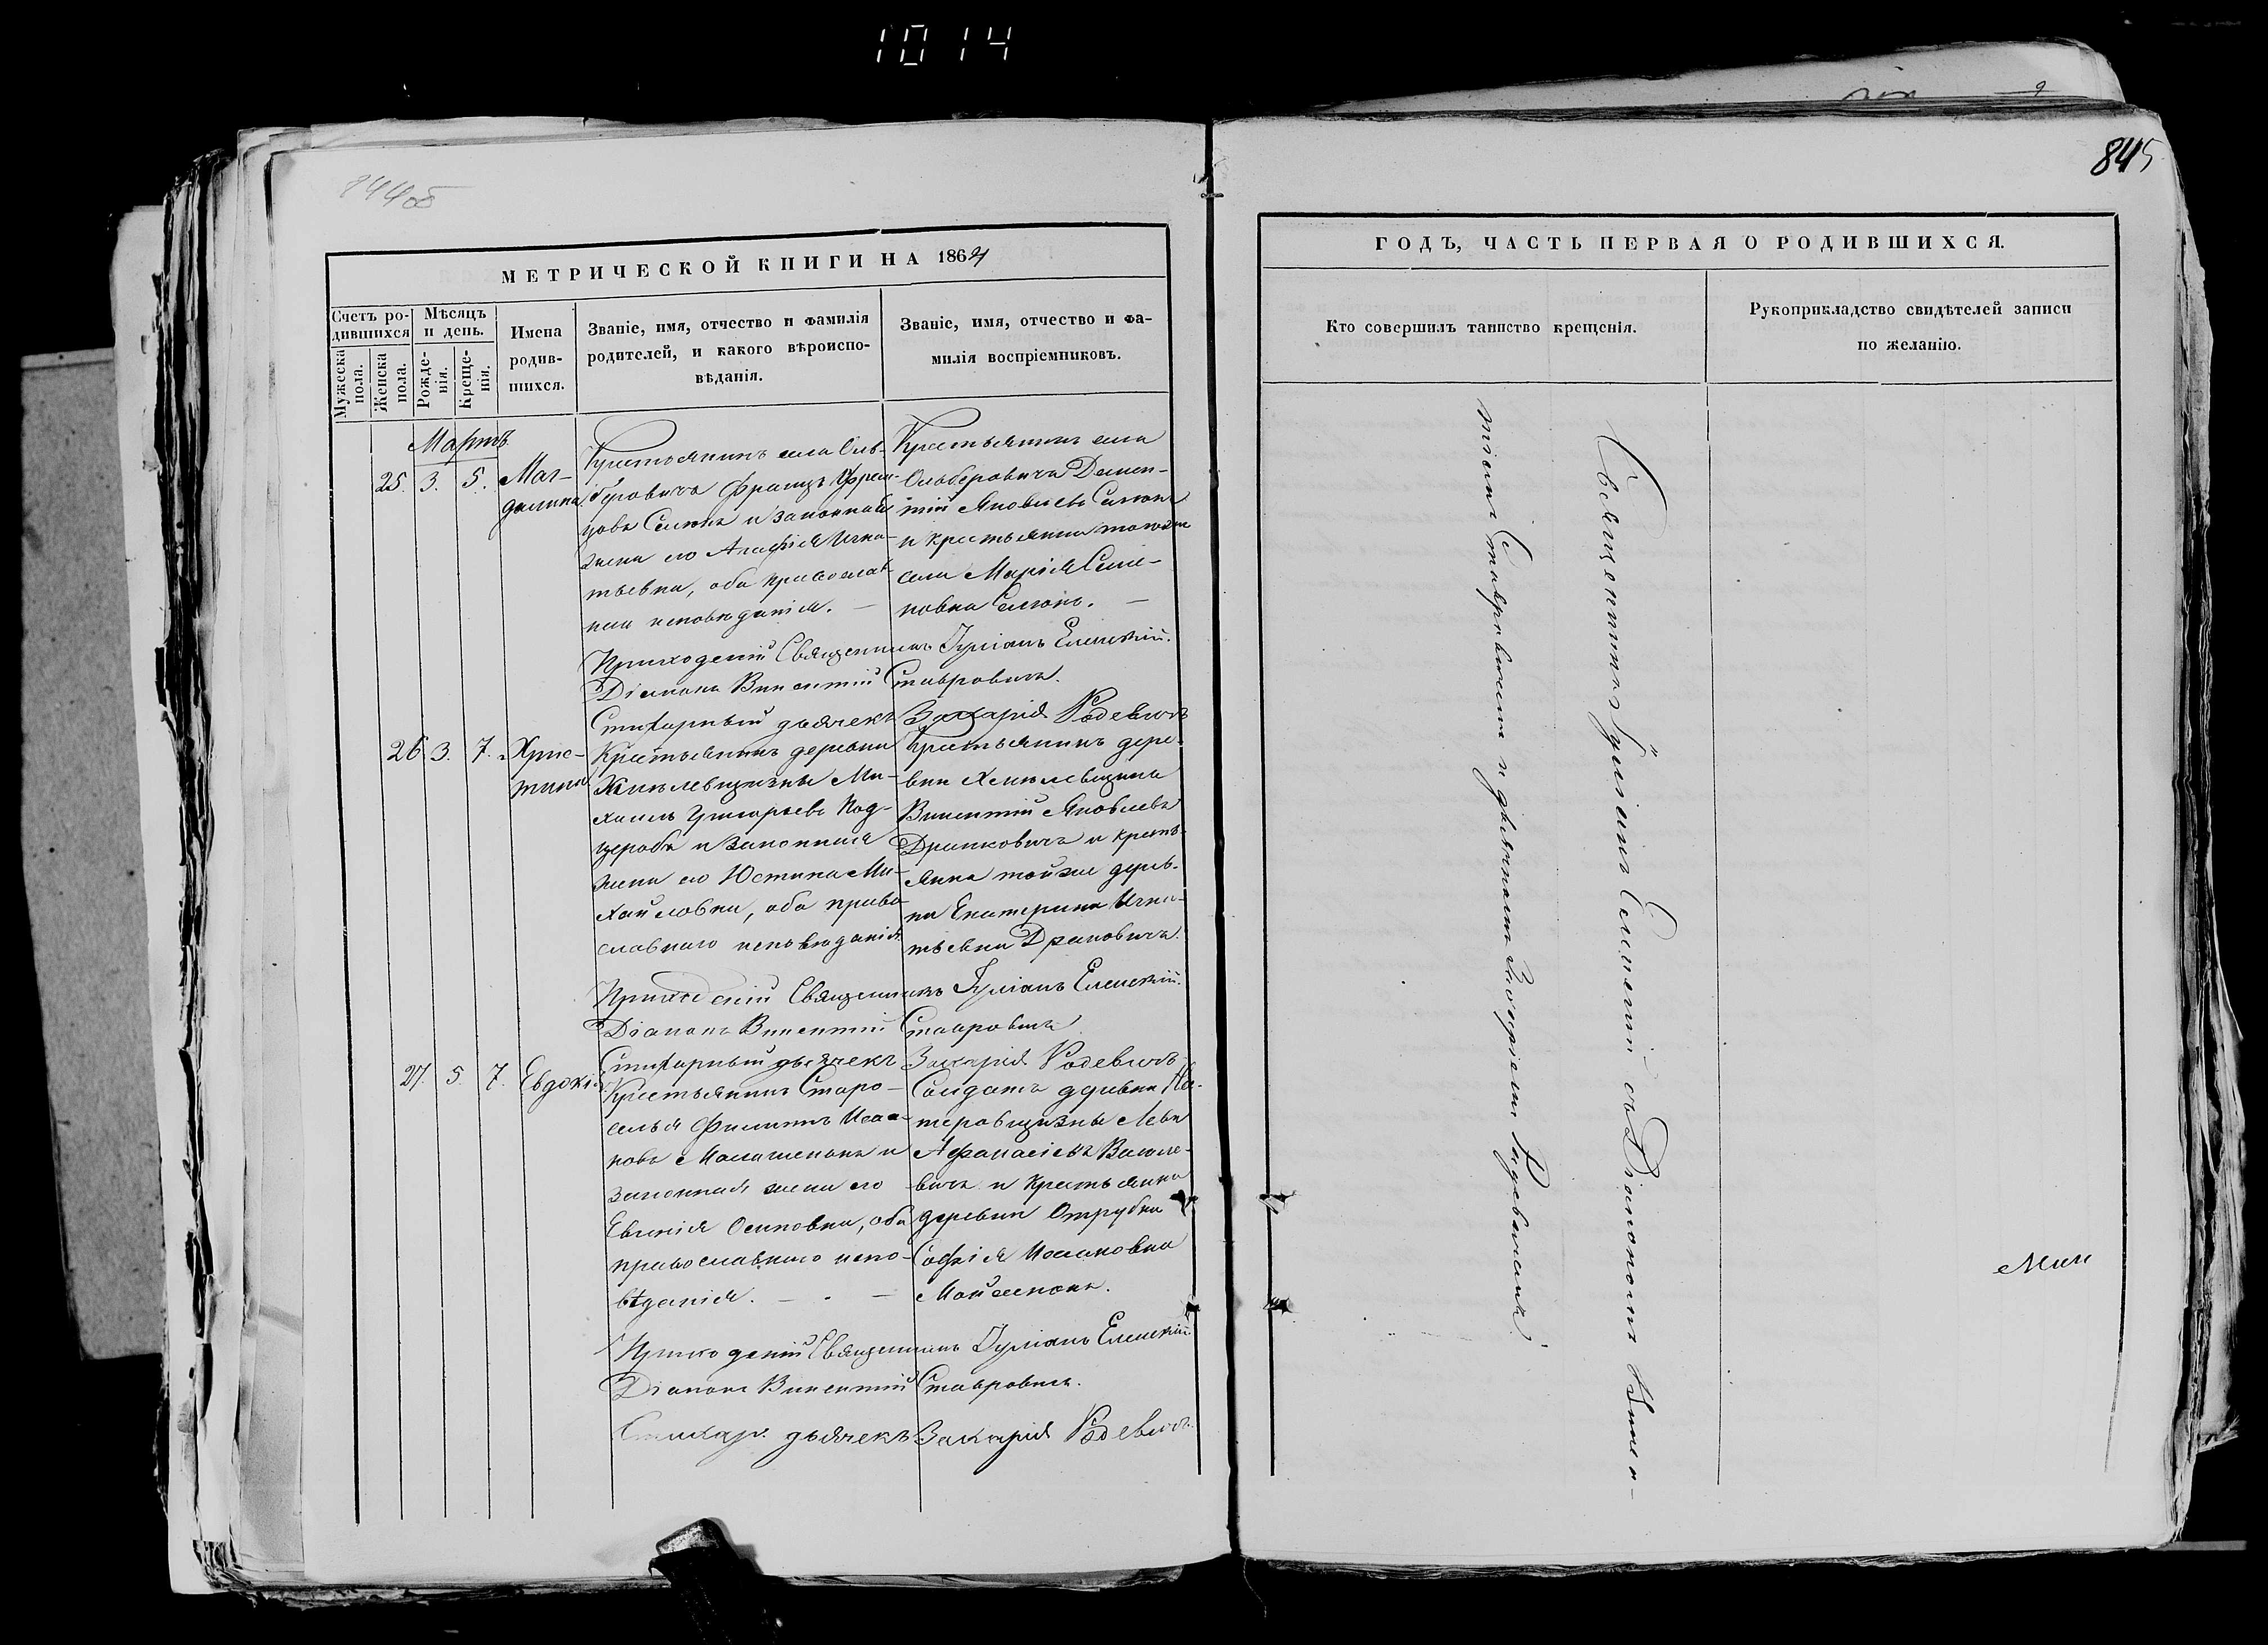 1014
844об
845
МЕТРИЧЕСКОЙ КНИГИ НА 1864
Счетъ ро-
дившихся
Мѣсяцъ
и день.
Мужеска
пола.
Женска
пола.
Рожде-
нія.
Креще-
нія.
Имена
родив-
шихся.
Званіе, имя, отчество и фамилія
родителей, и какого вѣроиспо-
вѣданія.
Званіе, имя, отчество и фа-
милія воспріемниковъ.
Мартъ
25. 3. 5. Маг-
далина
Крестьянинъ села Оль-
беровича Францъ
цовъ Симонъ и законная
жена его Агафія Игна-
тьевна, оба православ-
исповѣданія. —
Крестьянинъ села
Ольберовича Демен-
тій Яковлевъ Симонъ
и крестьянка тогоже
села Марія Семе-
новна Симонъ. —
Приходскій Священникъ Іуліанъ Еленскій.
Діаконъ Викентій Ставровичъ.
Стихарный дьячекъ Захарія Родевичъ
26. 3. 7. Хрис-
тина
Крестьянинъ деревни
Хмилевщизны Ми-
хаилъ Григорьевъ Под-
щероба и законная
жена его Юстина Ми-
хайловна, оба право-
славнаго исповѣданія.
Крестьянинъ дере-
вни Хмилевщины
Викентій Яковлевъ
Дранковичъ и кресть-
янка тойже дерев-
ни Екатерина Игна-
тьевна Драковичъ.
Приходскій Священникъ Іуліанъ Еленскій.
Діаконъ Викентій Ставровичъ
Стихарный дьячекъ Захарія Родевичъ
27. 5. 7. Евдокія
Крестьянинъ Старо-
селья Филиппъ Исаа-
ковъ и
законная жена его
Евгенія Осиповна, оба
православнаго испо-
вѣданія. — . —
Солдатъ деревни Не-
теровщизны Левъ
Афанасіевъ Василе-
вичъ и крестьянка
деревни Отрубки
Софія Исааковна
Приходскій Священникъ Іуліанъ Еленскій
Діаконъ Викентій Ставровичъ.
Стихар. дьячекъ Захарія Родевичъ.
ГОДЪ, ЧАСТЬ ПЕРВАЯ О РОДИВШИХСЯ.
Кто совершилъ таинство крещенія.
Рукоприкладство свидѣтелей записи
по желанію.
Священникъ Іуліанъ Еленскій съ Діакономъ Викен-
тіемъ Ставровичемъ и дьячкомъ Захаріемъ Радевичемъ